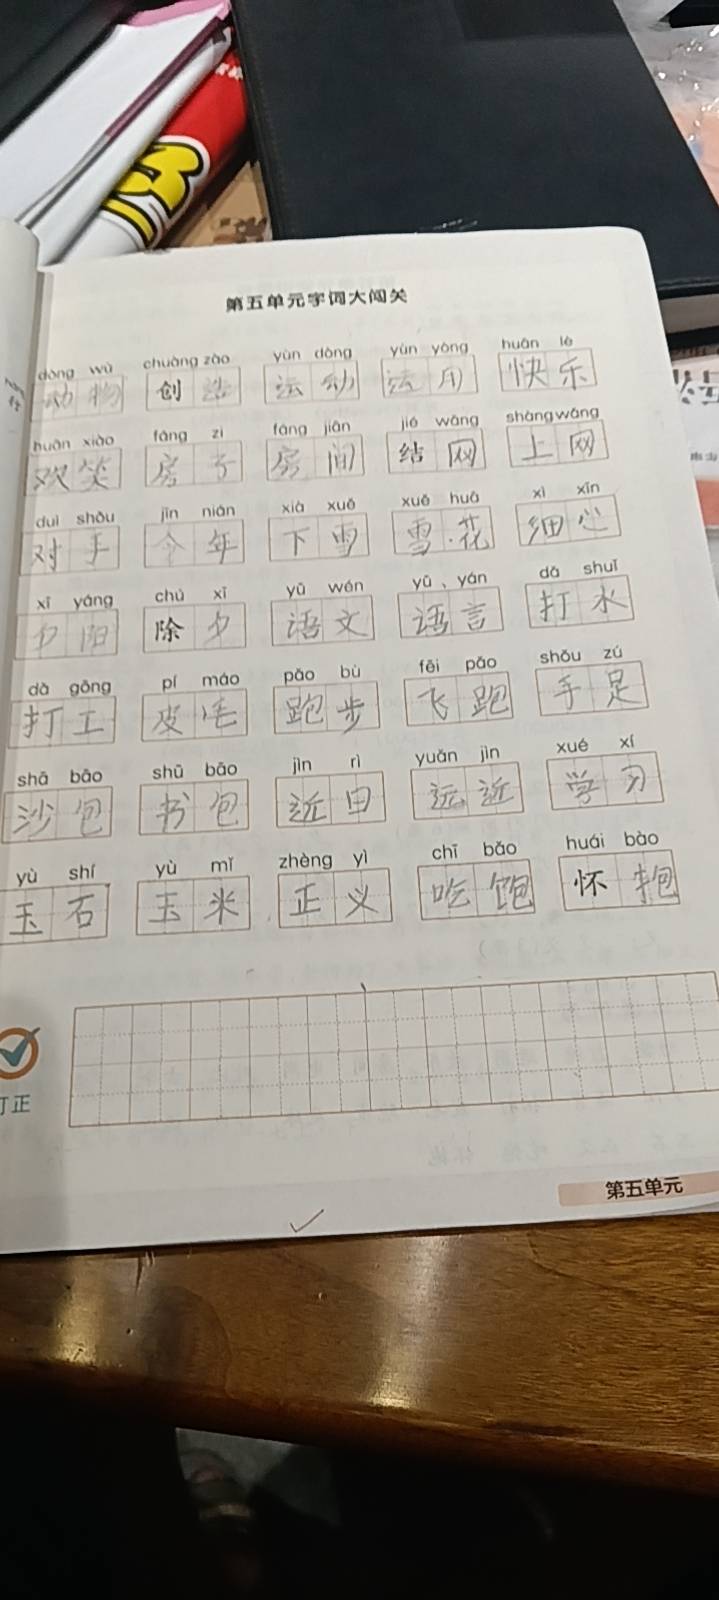 第五单元字词大闯关
dòng wù chuàng zào yùn dòng yùn yòng huān lè
动 物 创 造 运 动 运 用 快 乐
huān xiào fáng zi fáng jiān jié wǎng shàng wǎng
欢 笑 房 子 房 间 结 网 上 网
duì shǒu jīn nián xià xuě xuě huā xì xīn
对 手 今 年 下 雪 雪 花 细 心
xī yáng chú xī yǔ wén yǔ yán dǎ shuǐ
夕 阳 除 夕 语 文 语 言 打 水
dǎ gōng pí máo pǎo bù fēi pǎo shǒu zú
打 工 皮 毛 跑 步 飞 跑 手 足
shā bāo shū bāo jìn rì yuǎn jìn xué xí
沙 包 书 包 近 日 远 近 学 习
yù shí yù mǐ zhèng yì chī bǎo huái bào
玉 石 玉 米 正 义 吃 饱 怀 抱
订正
第五单元